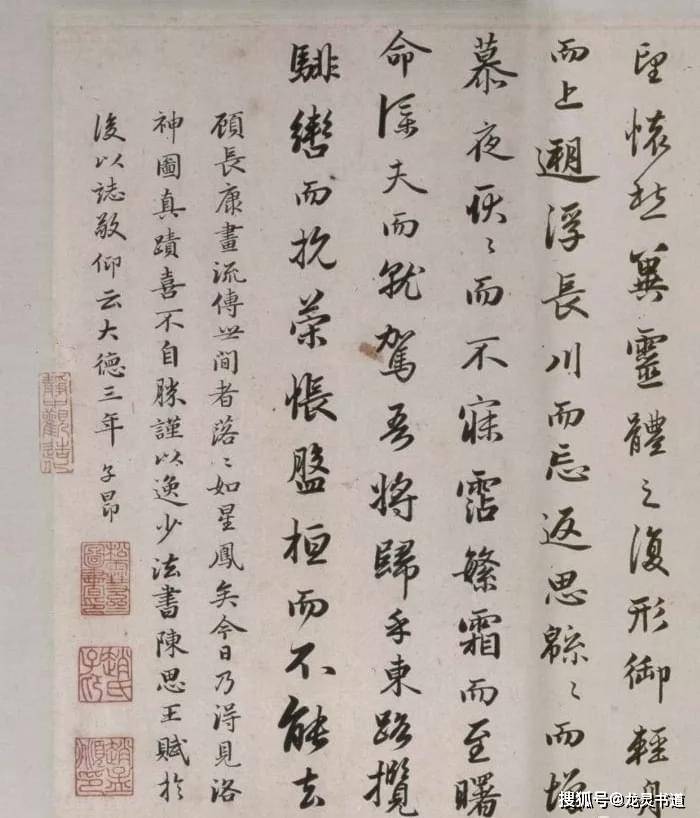 望懷愁冀靈體之復形御輕舟
而上遡浮長川而忘返思緜〻而增
慕夜耿〻而不寐霑繁霜而至曙
命僕夫而就駕吾將歸乎東路攬
騑轡而抗策悵盤桓而不能去
顧長康畫流傳世間者落〻如星鳳矣今日乃得見洛
神圖真蹟喜不自勝謹以逸少法書陳思王賦於
後以誌敬仰云大德三年 子昂
松雪齋圖書印
趙氏子昂
趙孟頫印
搜狐号@龙灵书道